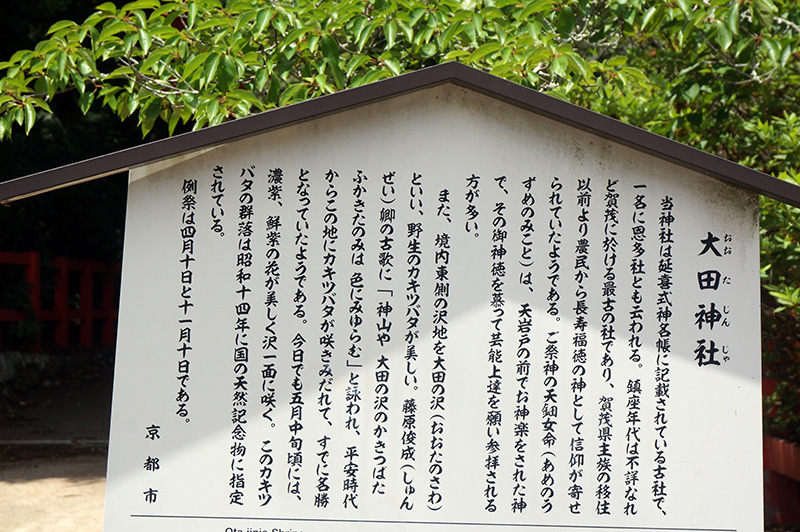 大田神社
おおたじんじゃ
当神社は延喜式神名帳に記載されている古社で、
一名に恩多社とも云われる。鎮座年代は不詳なれ
ど賀茂に於ける最古の社であり、賀茂県主族の移住
以前より農民から長寿福徳の神として信仰が寄せ
られていたようである。ご祭神の天鈿女命(あめのう
ずめのみこと)は、天岩戸の前でお神楽をされた神
で、その御神徳を慕って芸能上達を願い参拝される
方が多い。
また、境内東側の沢地を大田の沢(おおたのさわ)
といい、野生のカキツバタが美しい。藤原俊成(しゅん
ぜい)卿の古歌に「神山や 大田の沢のかきつばた
ふかきたのみは 色にみゆらむ」と詠われ、平安時代
からこの地にカキツバタが咲きみだれて、すでに名勝
となっていたようである。今日でも五月中旬頃には、
濃紫、鮮紫の花が美しく沢一面に咲く。このカキツ
バタの群落は昭和十四年に国の天然記念物に指定
されている。
例祭は四月十日と十一月十日である。
京都市
Ota-jinja Shrine